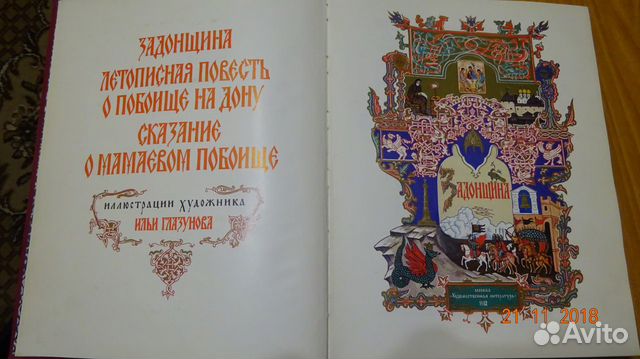 ЗАДОНЩИНА
ЛЕТОПИСНАЯ ПОВЕСТЬ
О ПОБОИЩЕ НА ДОНУ
СКАЗАНИЕ
О МАМАЕВОМ ПОБОИЩЕ
ИЛЛЮСТРАЦИИ ХУДОЖНИКА
ИЛЬИ ГЛАЗУНОВА
ЗАДОНЩИНА
МОСКВА
«ХУДОЖЕСТВЕННАЯ ЛИТЕРАТУРА»
21 11 2018
Avito